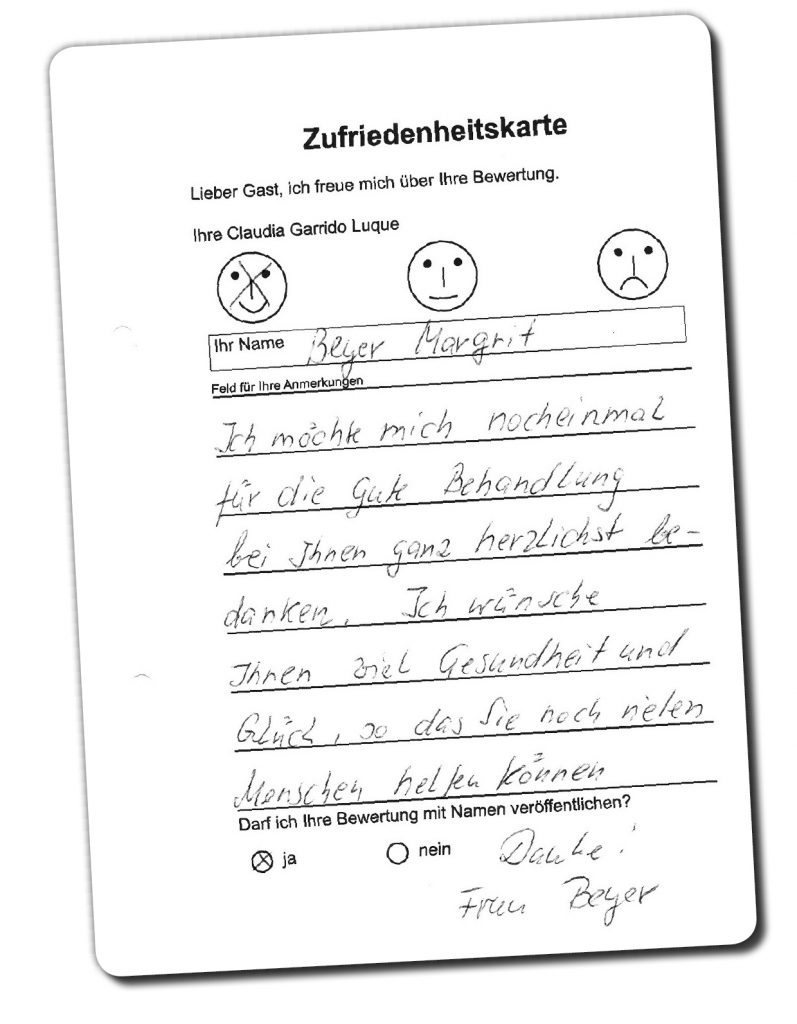 Zufriedenheitskarte
Lieber Gast, ich freue mich über Ihre Bewertung.
Ihre Claudia Garrido Luque
Ihr Name Beyer Margrit
Feld für Ihre Anmerkungen
Ich möchte mich nocheinmal
für die gute Behandlung
bei Ihnen ganz herzlichst be-
danken. Ich wünsche
Ihnen viel Gesundheit und
Glück, so das Sie noch vielen
Menschen helfen können
Darf ich Ihre Bewertung mit Namen veröffentlichen?
ja nein Danke!
Frau Beyer